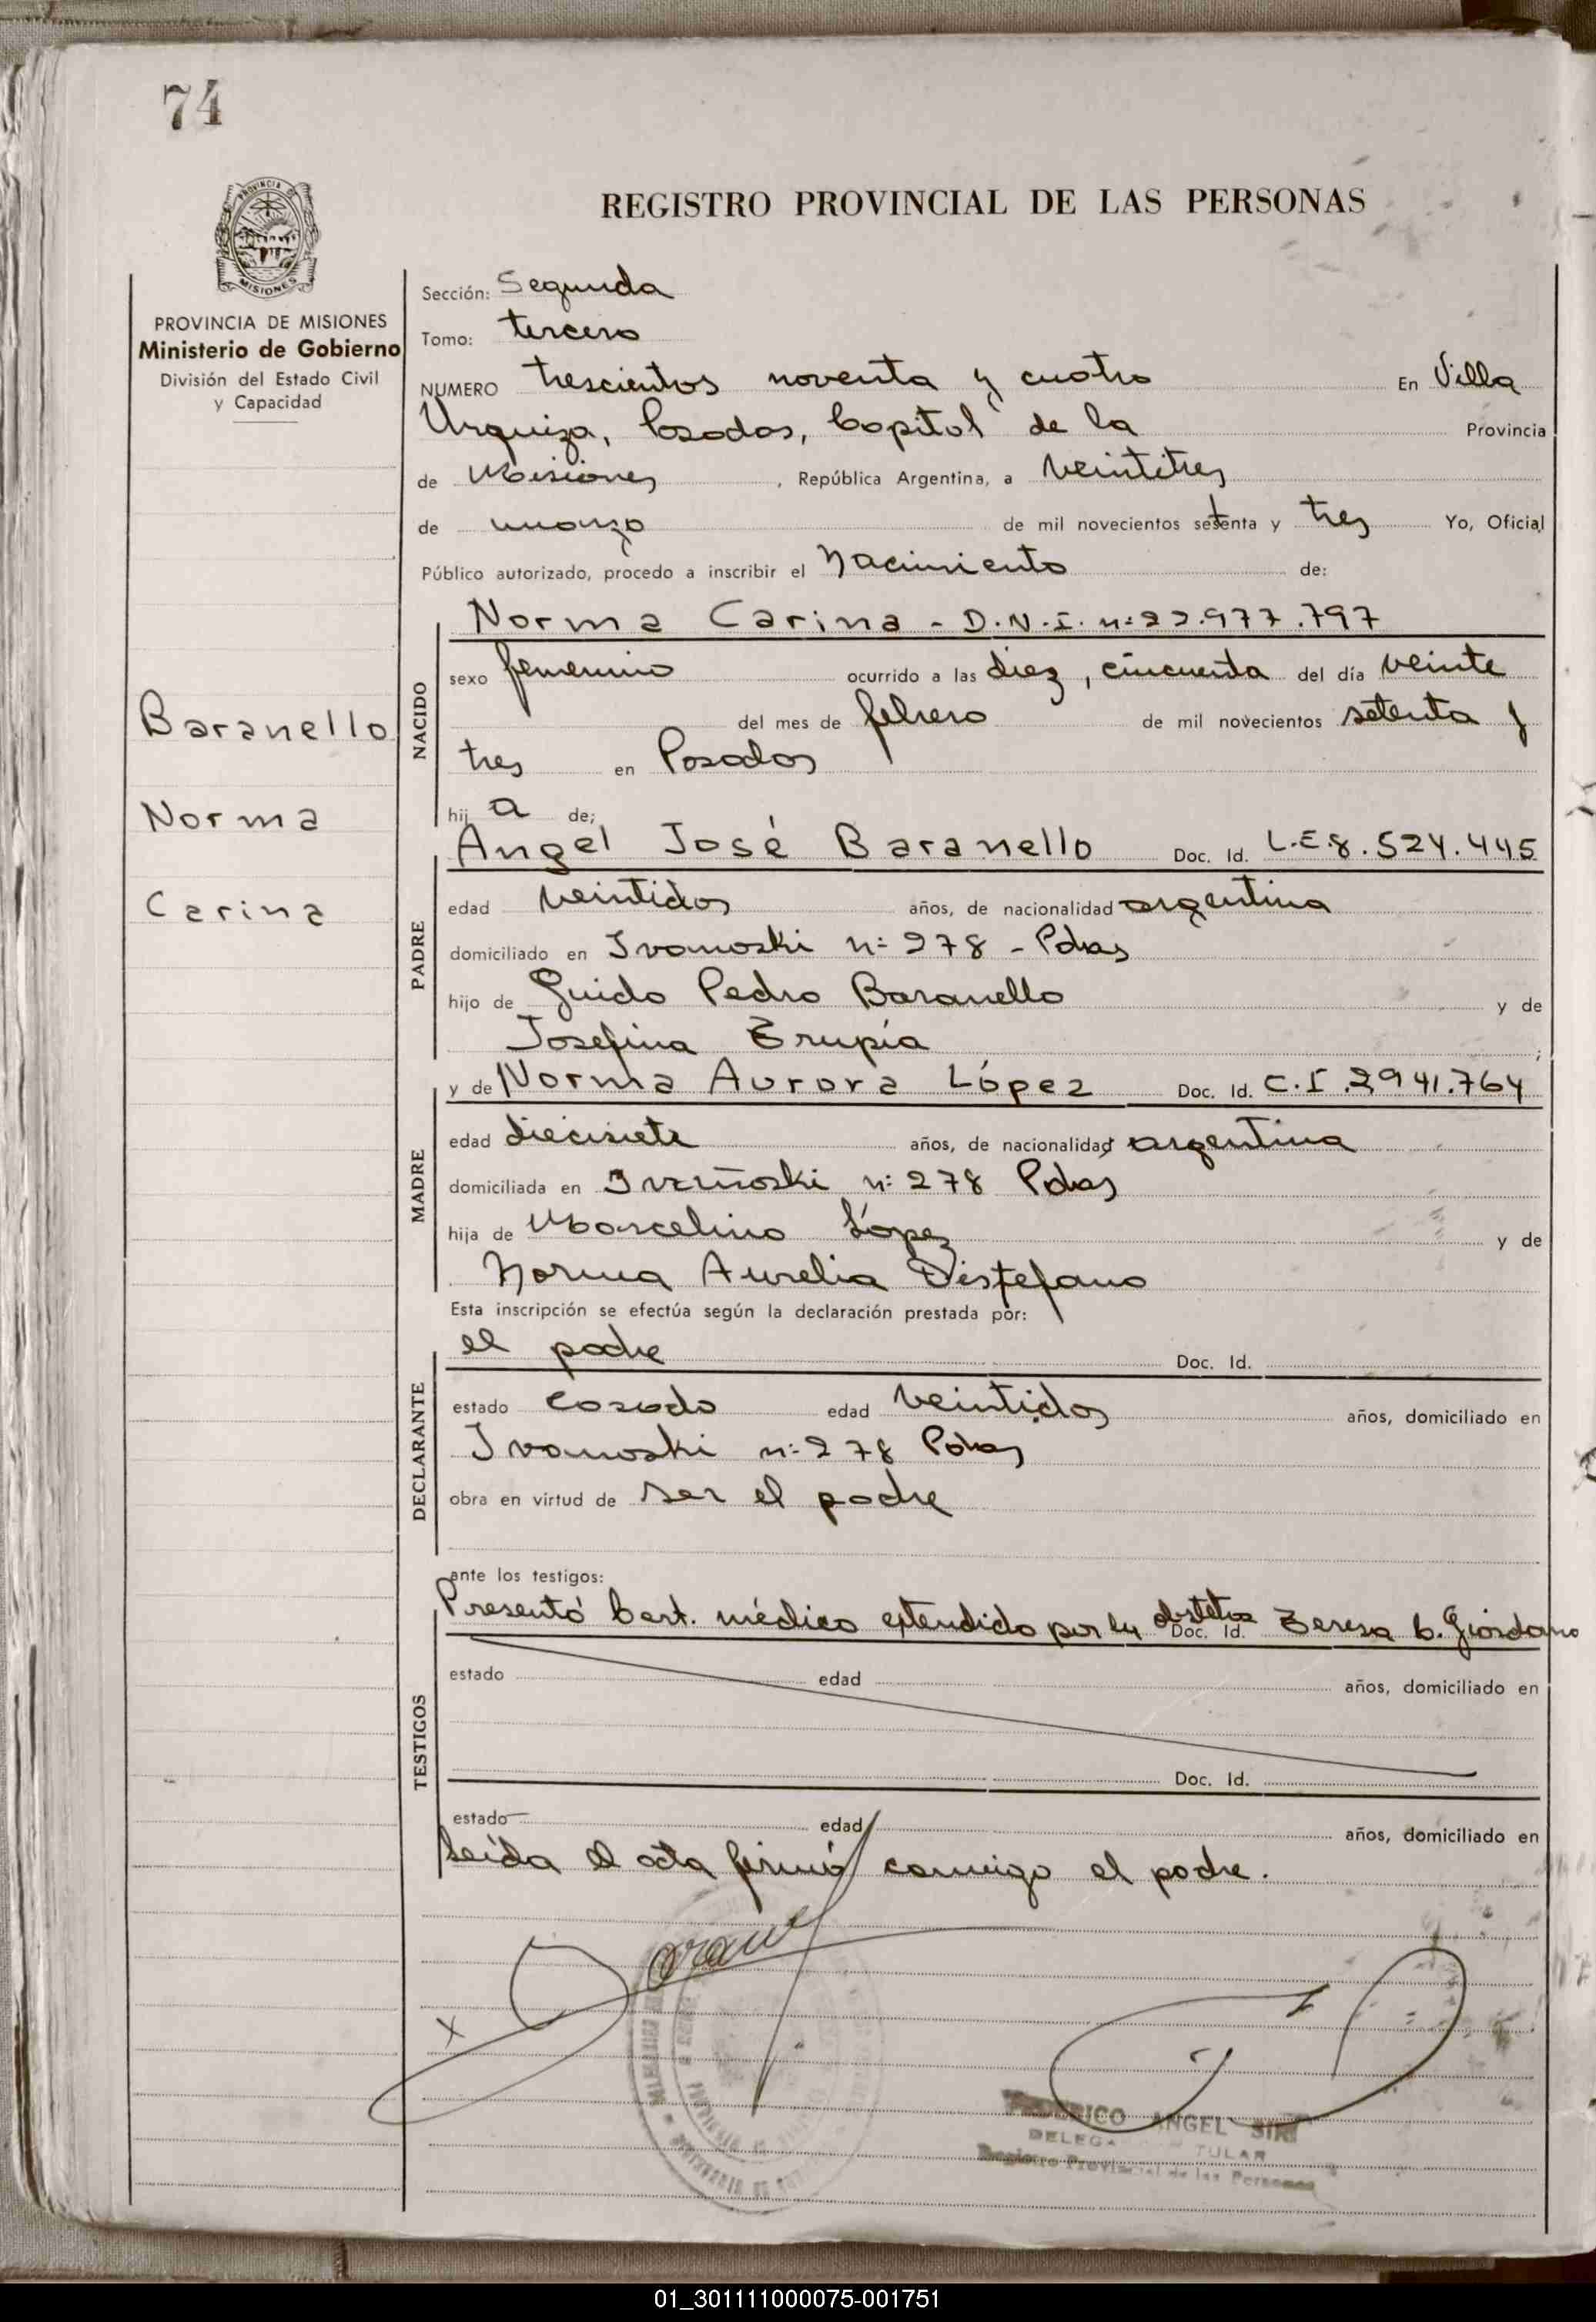 74
PROVINCIA DE
MISIONES
REGISTRO PROVINCIAL DE LAS PERSONAS
PROVINCIA DE MISIONES
Ministerio de Gobierno
División del Estado Civil
y Capacidad
Baranello
Norma
Carina
Sección: Segunda
Tomo: tercero
NUMERO trescientos noventa y cuatro En Villa
Urquiza, Posadas, Capital de la Provincia
de Misiones, República Argentina, a veintitres
de marzo de mil novecientos setenta y tres Yo, Oficial
Público autorizado, procedo a inscribir el Nacimiento de:
NACIDO
Norma Carina - D.N.I. n:22.977.797
sexo femenino ocurrido a las diez, cincuenta del día veinte
del mes de febrero de mil novecientos setenta y
tres en Posadas
hij a de;
PADRE
Angel José Baranello Doc. Id. L.E 8.524.445
edad veintidos años, de nacionalidad argentina
domiciliado en Ivanoski n: 278 - Pdas
hijo de Guido Pedro Baranello y de
Josefina Trupía;
MADRE
y de Norma Aurora López Doc. Id. C.I. 2941.764
edad diecisiete años, de nacionalidad argentina
domiciliada en Ivanoski n: 278 Pdas
hija de Marcelino López y de
Norma Aurelia Distefano
Esta inscripción se efectúa según la declaración prestada por:
DECLARANTE
el padre Doc. Id.
estado casado edad veintidos años, domiciliado en
Ivanoski n: 278 Pdas
obra en virtud de ser el padre
ante los testigos:
TESTIGOS
Presentó Cert. médico extendido por la obstetra Doc. Id. Teresa C. Giordano
estado edad años, domiciliado en
Doc. Id.
estado edad años, domiciliado en
Leída el acta firmó conmigo el padre.
X
FEDERICO ANGEL SIRI
Registro Provincial de las Personas
01_301111000075-001751